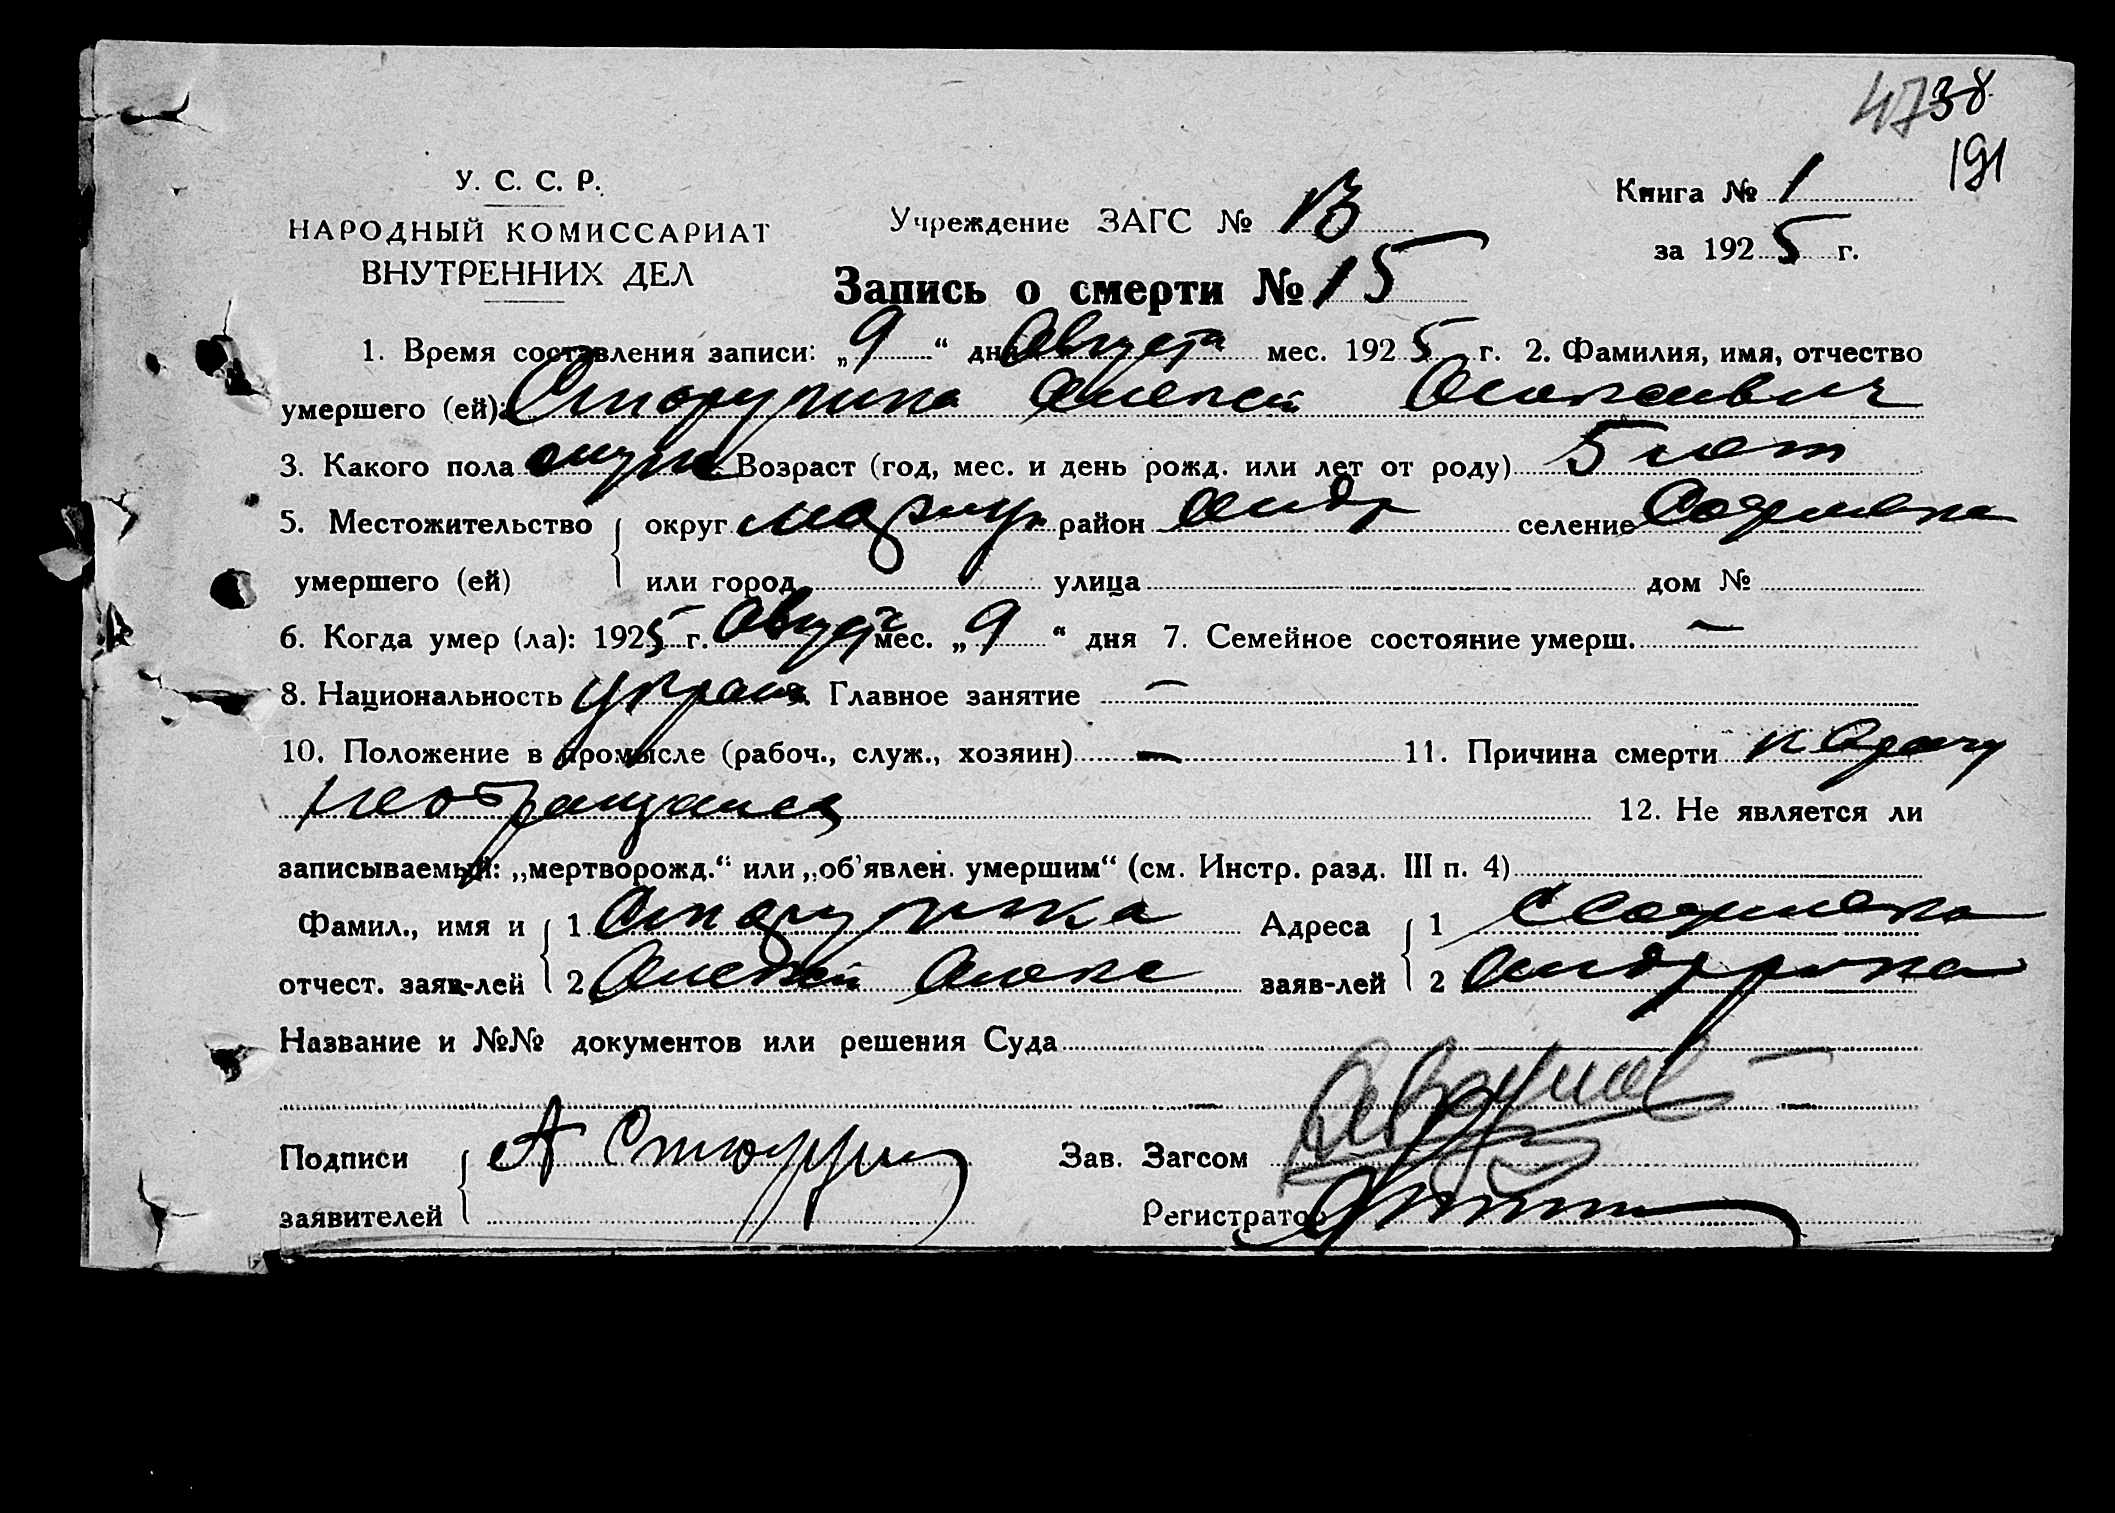 4738
191
У. С. С. Р.
НАРОДНЫЙ КОМИССАРИАТ
ВНУТРЕННИХ ДЕЛ
Учреждение ЗАГС №
Книга № 1
за 1925 г.
Запись о смерти № 15
1. Время составления записи: „9“ дня Августа мес. 1925 г. 2. Фамилия, имя, отчество
умершего (ей): Алексей Алексеевич
3. Какого пола муж Возраст (год, мес. и день рожд. или лет от роду) 5 лет
5. Местожительство округ Мариуп район Андр селение
умершего (ей) или город улица дом №
6. Когда умер (ла): 1925 г. Август мес. „9“ дня 7. Семейное состояние умерш. —
8. Национальность украин Главное занятие —
10. Положение в промысле (рабоч., служ., хозяин) — 11. Причина смерти к врачу
необращался
12. Не является ли
записываемый: „мертворожд.“ или „об'явлен. умершим“ (см. Инстр. разд. III п. 4)
Фамил., имя и 1 Адреса 1
отчест. заяв-лей 2 Алексей Алекс заяв-лей 2
Название и №№ документов или решения Суда
Подписи Зав. Загсом
заявителей Регистратор